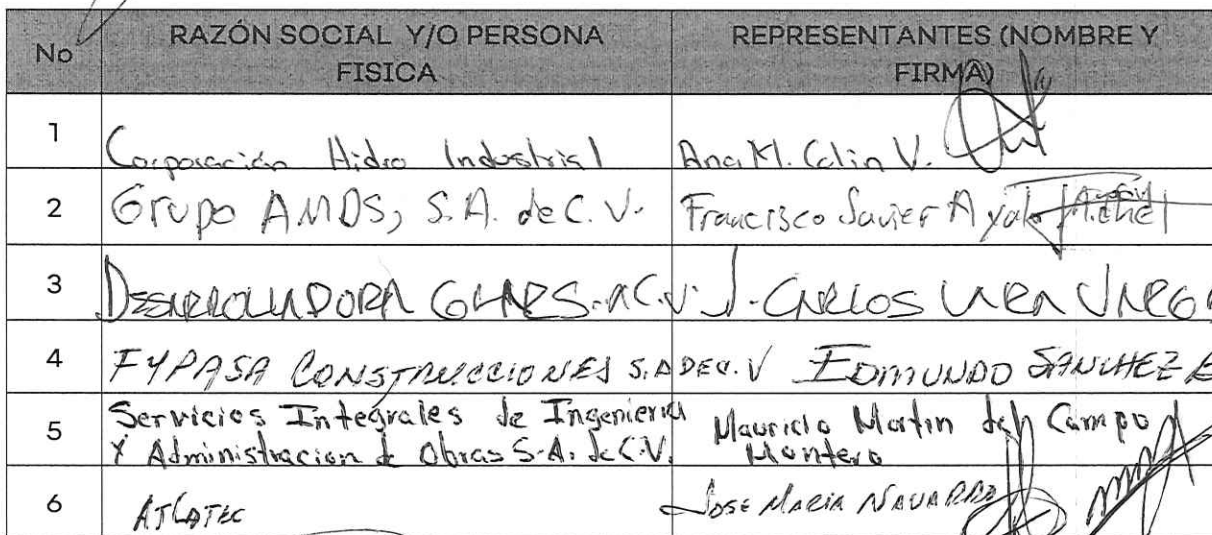 No RAZÓN SOCIAL Y/O PERSONA FISICA REPRESENTANTES (NOMBRE Y FIRMA)
1 Corporación Hidro Industrial Ana M. Colin V.
2 Grupo AMDS, S.A. de C.V. Francisco Javier Ayala Michel
3 DESARROLLADORA S.A C.V. J. CARLOS LARA
4 FYPASA CONSTRUCCIONES S.A DE C.V EDMUNDO SANCHEZ
5 Servicios Integrales de Ingenieria Mauricio Martin del Campo
Y Administracion de Obras S.A. de C.V. Montero
6 ATLATEC JOSE MARIA NAVARRO